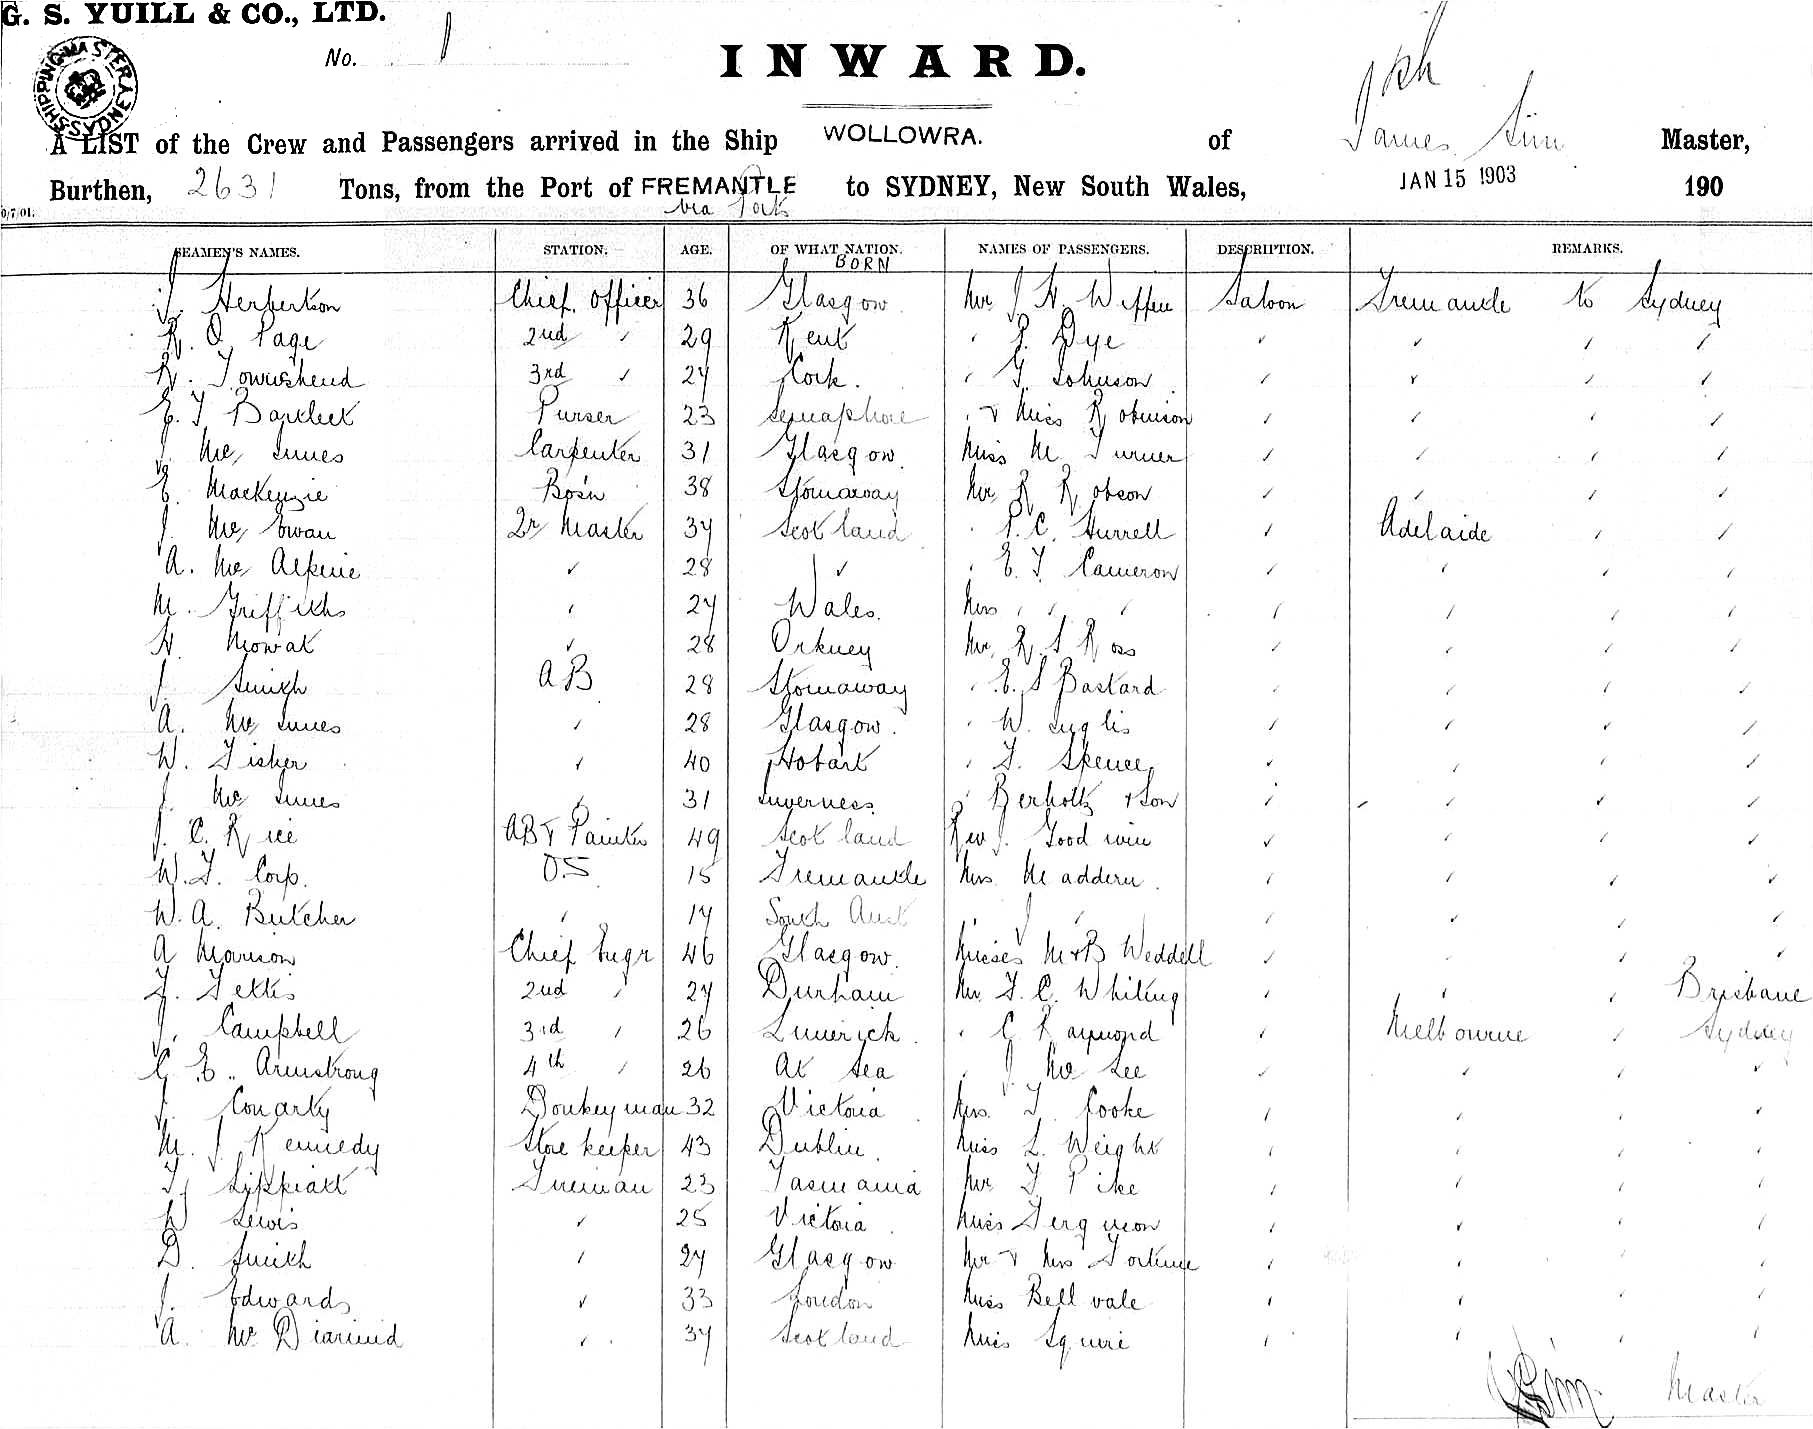 G. S. YUILL & CO., LTD.
SHIPPING MASTER SYDNEY
No. 1
INWARD.
A LIST of the Crew and Passengers arrived in the Ship WOLLOWRA. of James Sim Master,
Burthen, 2631 Tons, from the Port of FREMANTLE to SYDNEY, New South Wales, JAN 15 1903 190
via Ports
SEAMEN'S NAMES. STATION. AGE. OF WHAT NATION. NAMES OF PASSENGERS. DESCRIPTION. REMARKS.
BORN
J. Herbertson Chief Officer 36 Glasgow Mr J H. Wiffen Saloon Fremantle to Sydney
R. O. Page 2nd " 29 Kent " P. Dye " " " "
R. Townshend 3rd " 27 Cork. " G. Johnson " " " "
E. T Bartlett Purser 23 Semaphore " + Miss Robinson " " " "
J. Mc Innes Carpenter 31 Glasgow. Miss M. Turner " " " "
E. MacKenzie Bosn 38 Stornaway Mr R Robson " " " "
J. Mc Ewan Qr Master 37 Scotland " P. C. Hurrell " Adelaide " "
A. Mc Alpine " 28 " " E. T. Cameron " " " "
M. Griffiths " 27 Wales. Mrs " " " " " " "
H. Mowat " 28 Orkney Mr. R. S Ross " " " "
J. Smith AB 28 Stornaway " E. S Bastard " " " "
A. Mc Innes " 28 Glasgow. " W. Inglis " " " "
W. Fisher " 40 Hobart " F. Spence " " " "
J. Mc Innes " 31 Inverness. " Berholtz + Son " " " "
J. C. Rice AB + Painter 49 Scotland Rev J. Goodwin " " " "
W. F. Corp. OS 15 Fremantle Mrs. Maddern. " " " "
W. A. Butcher " 17 South Aust " J " " " " "
A Morrison Chief Engr 46 Glasgow. Misses M + B Weddell " " " "
J. Tettis 2nd " 27 Durham Mr. F. C. Whiting " " " Brisbane
J. Campbell 3rd " 26 Limerick. " C Raymond " Melbourne " Sydney
C. E. Armstrong 4th " 26 At Sea " J Mc Lee " " " "
J. Conarty Donkeyman 32 Victoria Mrs. T. Cooke " " " "
M. J. Kennedy Store keeper 43 Dublin. Miss L. Weight " " " "
T. Lippiatt Fireman 23 Tasmania Mr T Pike " " " "
W Lewis " 25 Victoria Miss Ferguson " " " "
D. Smith " 27 Glasgow Mr + Mrs Fortune " " " "
J. Edwards " 33 London Miss Bellvale " " " "
A. Mc Diarmid " 37 Scotland Miss Squire " " " "
J Sim Master